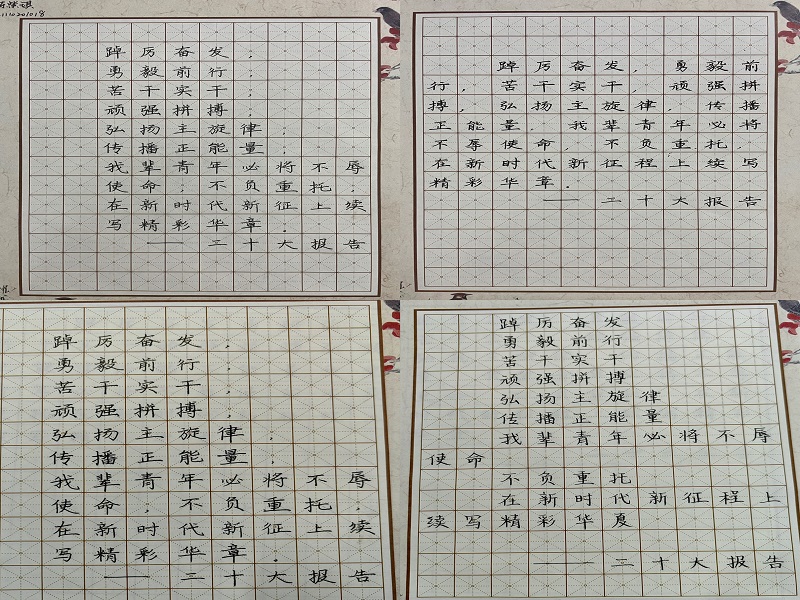 踔厉奋发；
勇毅前行；
苦干实干；
顽强拼搏；
弘扬主旋律；
传播正能量；
我辈青年必将不辱
使命；不负重托；
在新时代新征上续
写精彩华章。
——二十大报告
踔厉奋发，勇毅前
行，苦干实干，顽强拼
搏，弘扬主旋律，传播
正能量．我辈青年必将
不辱使命，不负重托，
在新时代新征程上续写
精彩华章．
——二十大报告
踔厉奋发；
勇毅前行；
苦干实干；
顽强拼搏；
弘扬主旋律；
传播正能量；
我辈青年必将不辱
使命，不负重托，
在新时代新征上续
写精彩华章．
——二十大报告
踔厉奋发
勇毅前行
苦干实干
顽强拼搏
弘扬主旋律
传播正能量
我辈青年必将不辱
使命
不负重托
在新时代新征程上
续写精彩华夏
——二十大报告